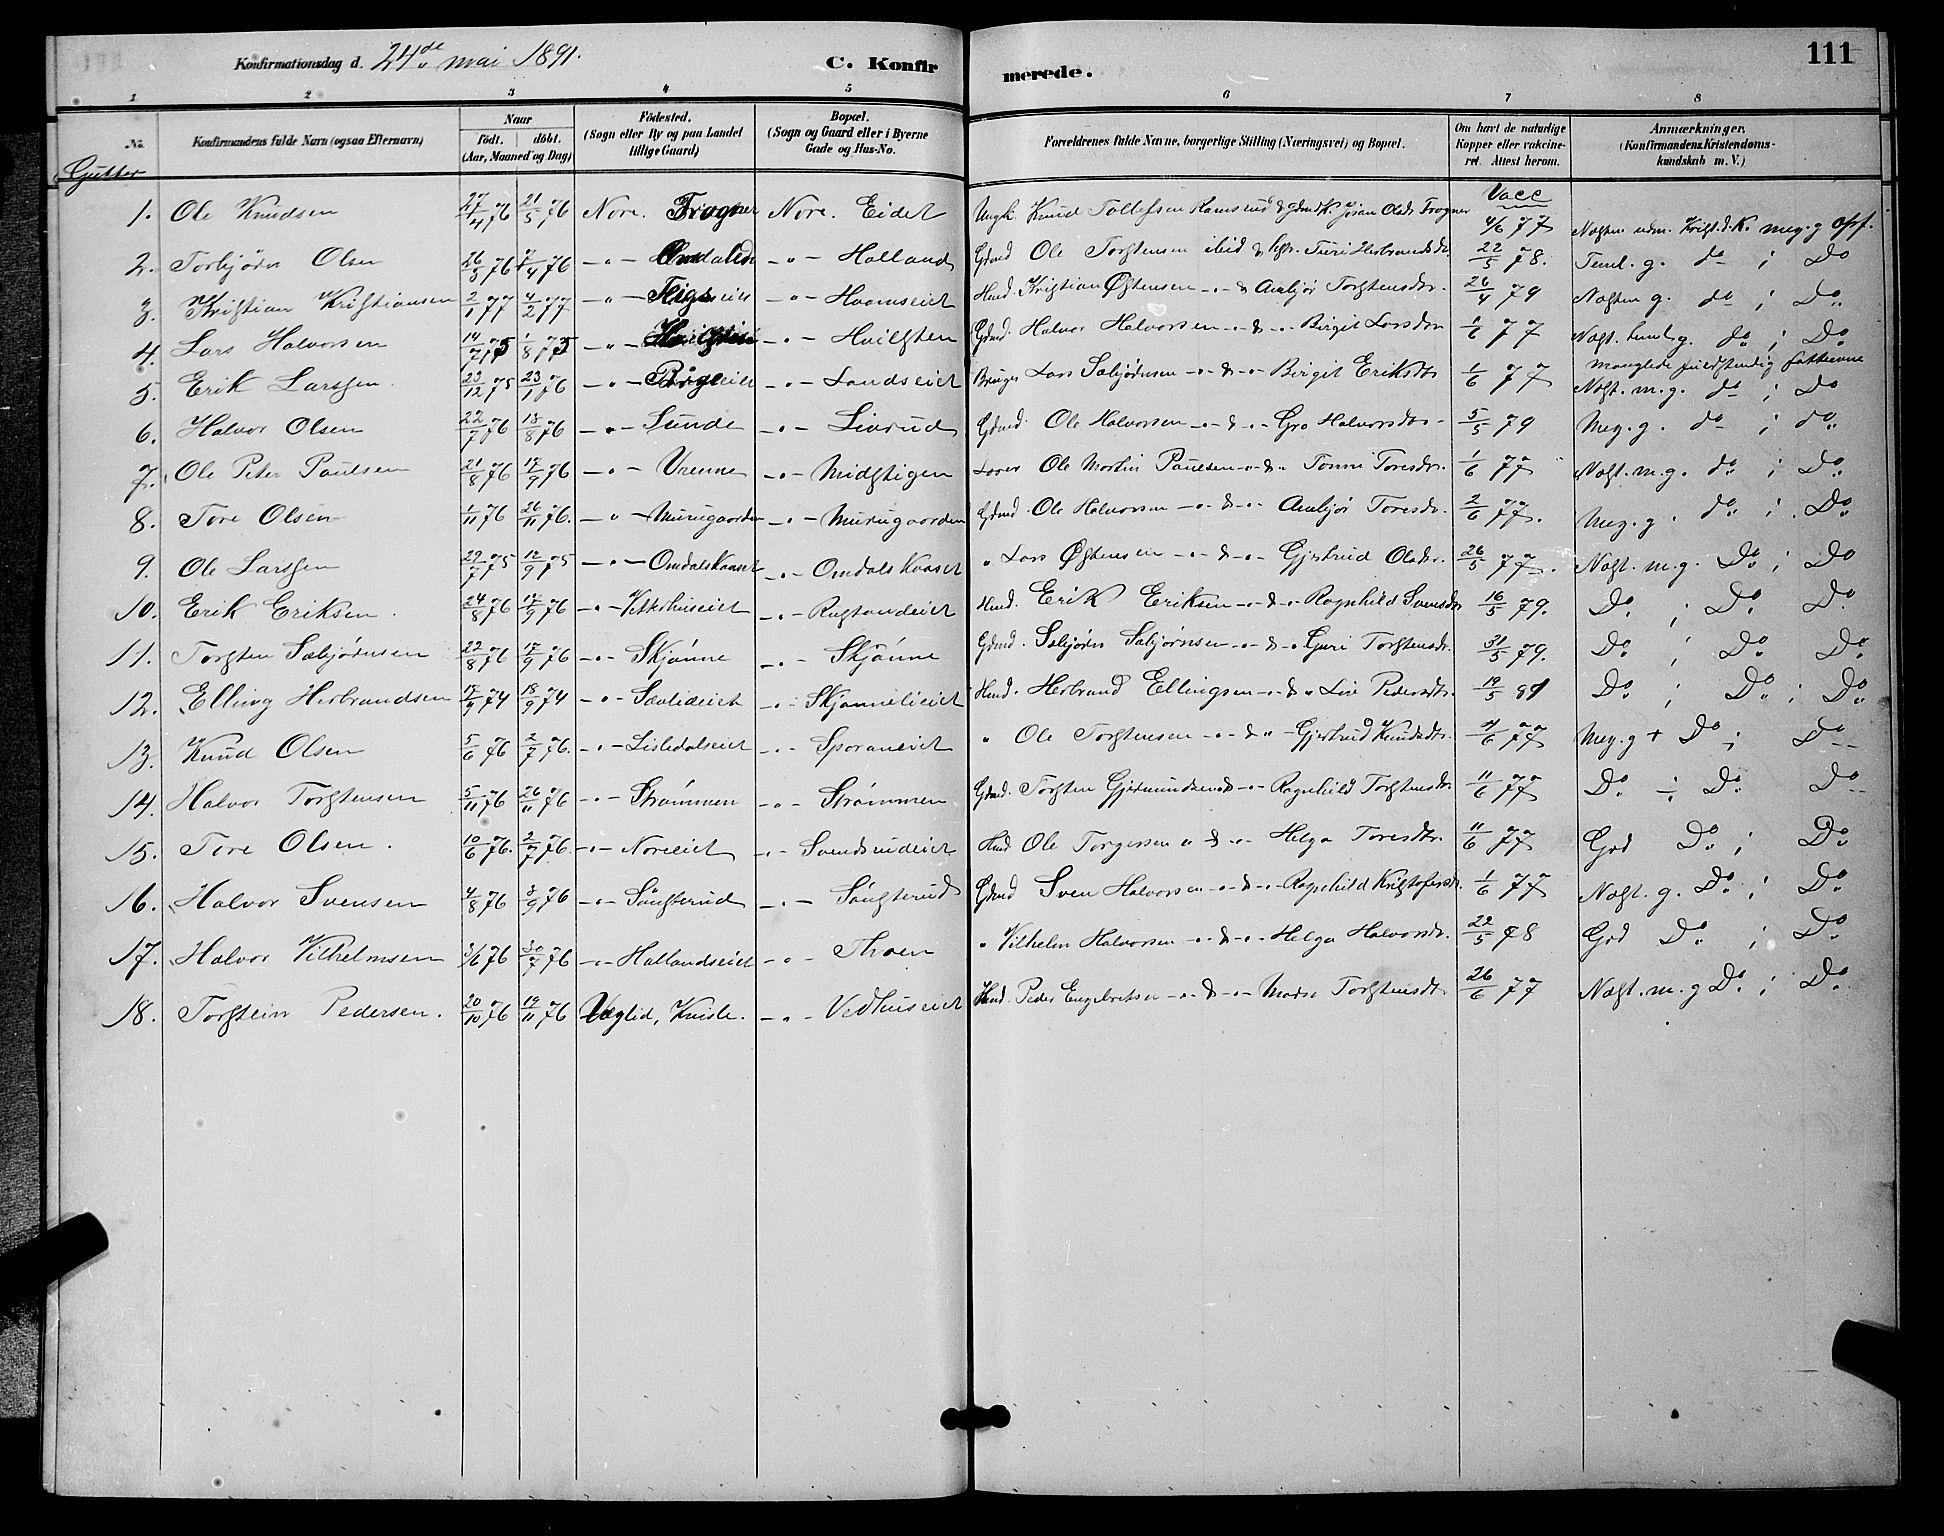 Konfirmationsdag d. 24de mai 1891. C. Konfirmerede. 111
1 2 3 4 5 6 7 8
No. Konfirmandens fulde Navn (ogsaa Efternavn) Naar født. døbt. (Aar, Maaned og Dag) Födested. (Sogn eller By og paa Landet tillige Gaard) Bopæl. (Sogn og Gaard eller i Byerne Gade og Hus-No. Forældrenes fulde Navne, borgerlige Stilling (Næringsvei) og Bopæl. Om havt de naturlige Kopper eller vakcineret. Attest herom. Anmærkninger. (Konfirmandens Kristendomskundskab m. V.)
Gutter
Vacc
1. Ole Knudsen 27/4 76 21/5 76 Nore. Frogner Nore. Eidet Ungk. Knud Tollefsen Ramsrud & Jöran Olsdr Frogner 4/6 77 Næsten udm. Krist.d.K. meg. g opf.
2. Torbjörn Olsen 26/3 76 7/4 76 -"- Omdalen -"- Halland Gdmd Ole Torstensen ibid & hstr. Turi Herbrandsdr. 22/5 78. Teml. g. do ; Do
3. Kristian Kristiansen 2/1 77 4/2 77 -"- -"- Hvamseiet Husd. Kristian Østensen -"- & Ambjør Torstensdr. 26/4 79 Næsten g. do ; Do
4. Lars Halvorsen 14/7 75 1/8 75 -"- -"- Hvilsten Gdmd. Halvor Halvorsen -"- & -"- Birgit Larsdr 1/6 77 Næst. teml. g. do ; Do
manglede fatteevne
5. Erik Larssen. 23/12 75 23/1 76 -"- -"- Landseiet Bruger Lars Sæbjörnsen -"- & -"- Birgit Eriksdr 1/6 77 Næst. m. g. do ; Do
6. Halvor Olsen 22/7 76 18/8 76 -"- Sunde -"- Livrud Gdmd. Ole Halvorsen -"- & -"- Gro Halvorsdr. 5/5 79 Meg. g. do ; do
7. Ole Peter Paulsen 21/8 76 17/9 76 -"- Vrenne -"- Midstigen Lærer Ole Martin Paulsen -"- & -"- Tonni Toresdr. 1/6 77 Næst. m. g. do ; Do
8. Tore Olsen 1/11 76 26/11 76. -"- Murugaarden -"- Murugaarden Gdmd. Ole Halvorsen -"- & -"- Ambjør Toresdr. 2/6 77. Meg. g. do ; Do
9. Ole Larssen 29/7 75 12/9 75 -"- Omdalskaaset -"- Omdalskaaset " Lars Østensen -"- & -"- Gjertrud Olsdr. 26/5 77. Næst. m. g. Do ; Do
10. Erik Eriksen. 24/8 76 17/9 76 -"- -"- Husd. Erik Eriksen -"- & -"- Ragnhild Svensdr 16/5 79. Do ; Do Do
11. Torsten Sæbjörnsen 22/8 76 17/9 76 -"- Skjönne -"- Skjönne Gdmd. Sæbjörn Sæbjörnsen -"- & -"- Guri Torstensdr. 31/5 79. Do ; Do Do
12. Elling Herbrandsen 17/9 74 18/9 74 -"- Sævlideiet -"- Skjønnelieiet Husd. Herbrand Ellingsen -"- & " Live Pedersdr. 19/5 81 Do ; Do ; Do
13. Knud Olsen 5/6 76 2/7 76. -"- Lisledalseiet -"- Sporaneiet " Ole Torstensen -"- & " Gjertrud Knudsdr. 4/6 77 Meg. g + Do ; Do
14. Halvor Torstensen 5/11 76 26/11 76 -"- Strømmen -"- Strømmen Gdmd. Torsten Gjermundsen & -"- Ragnhild Torstensdr. 11/6 77 Do ; Do Do
15. Tore Olsen. 10/6 76. 2/7 76. -"- Noreeiet -"- Svendsrudeiet Husd Ole Torgersen " & " Helga Toresdtr. 11/6 77 God Do ; Do
16. Halvor Svensen 4/8 76 3/9 76 -"- Söngterud -"- Söngterud Gdmd Sven Halvorsen -"- & -"- Ragnhild Kristofersdr. 1/6 77 Næst. g. Do ; Do
17. Halvor Vilhelmsen 3/6 76 30/7 76 -"- Hallandseiet -"- Thoen " Vilhelm Halvorsen -"- & -"- Helga Halvorsdr. 22/5 78 God Do ; Do
18. Torstein Pedersen. 20/10 76 19/11 76 Veglid, -"- Vedhuseiet Husd. Peder Engebretsen -"- & -"- Torstensdtr 26/6 77 Næst. m. g Do ; Do